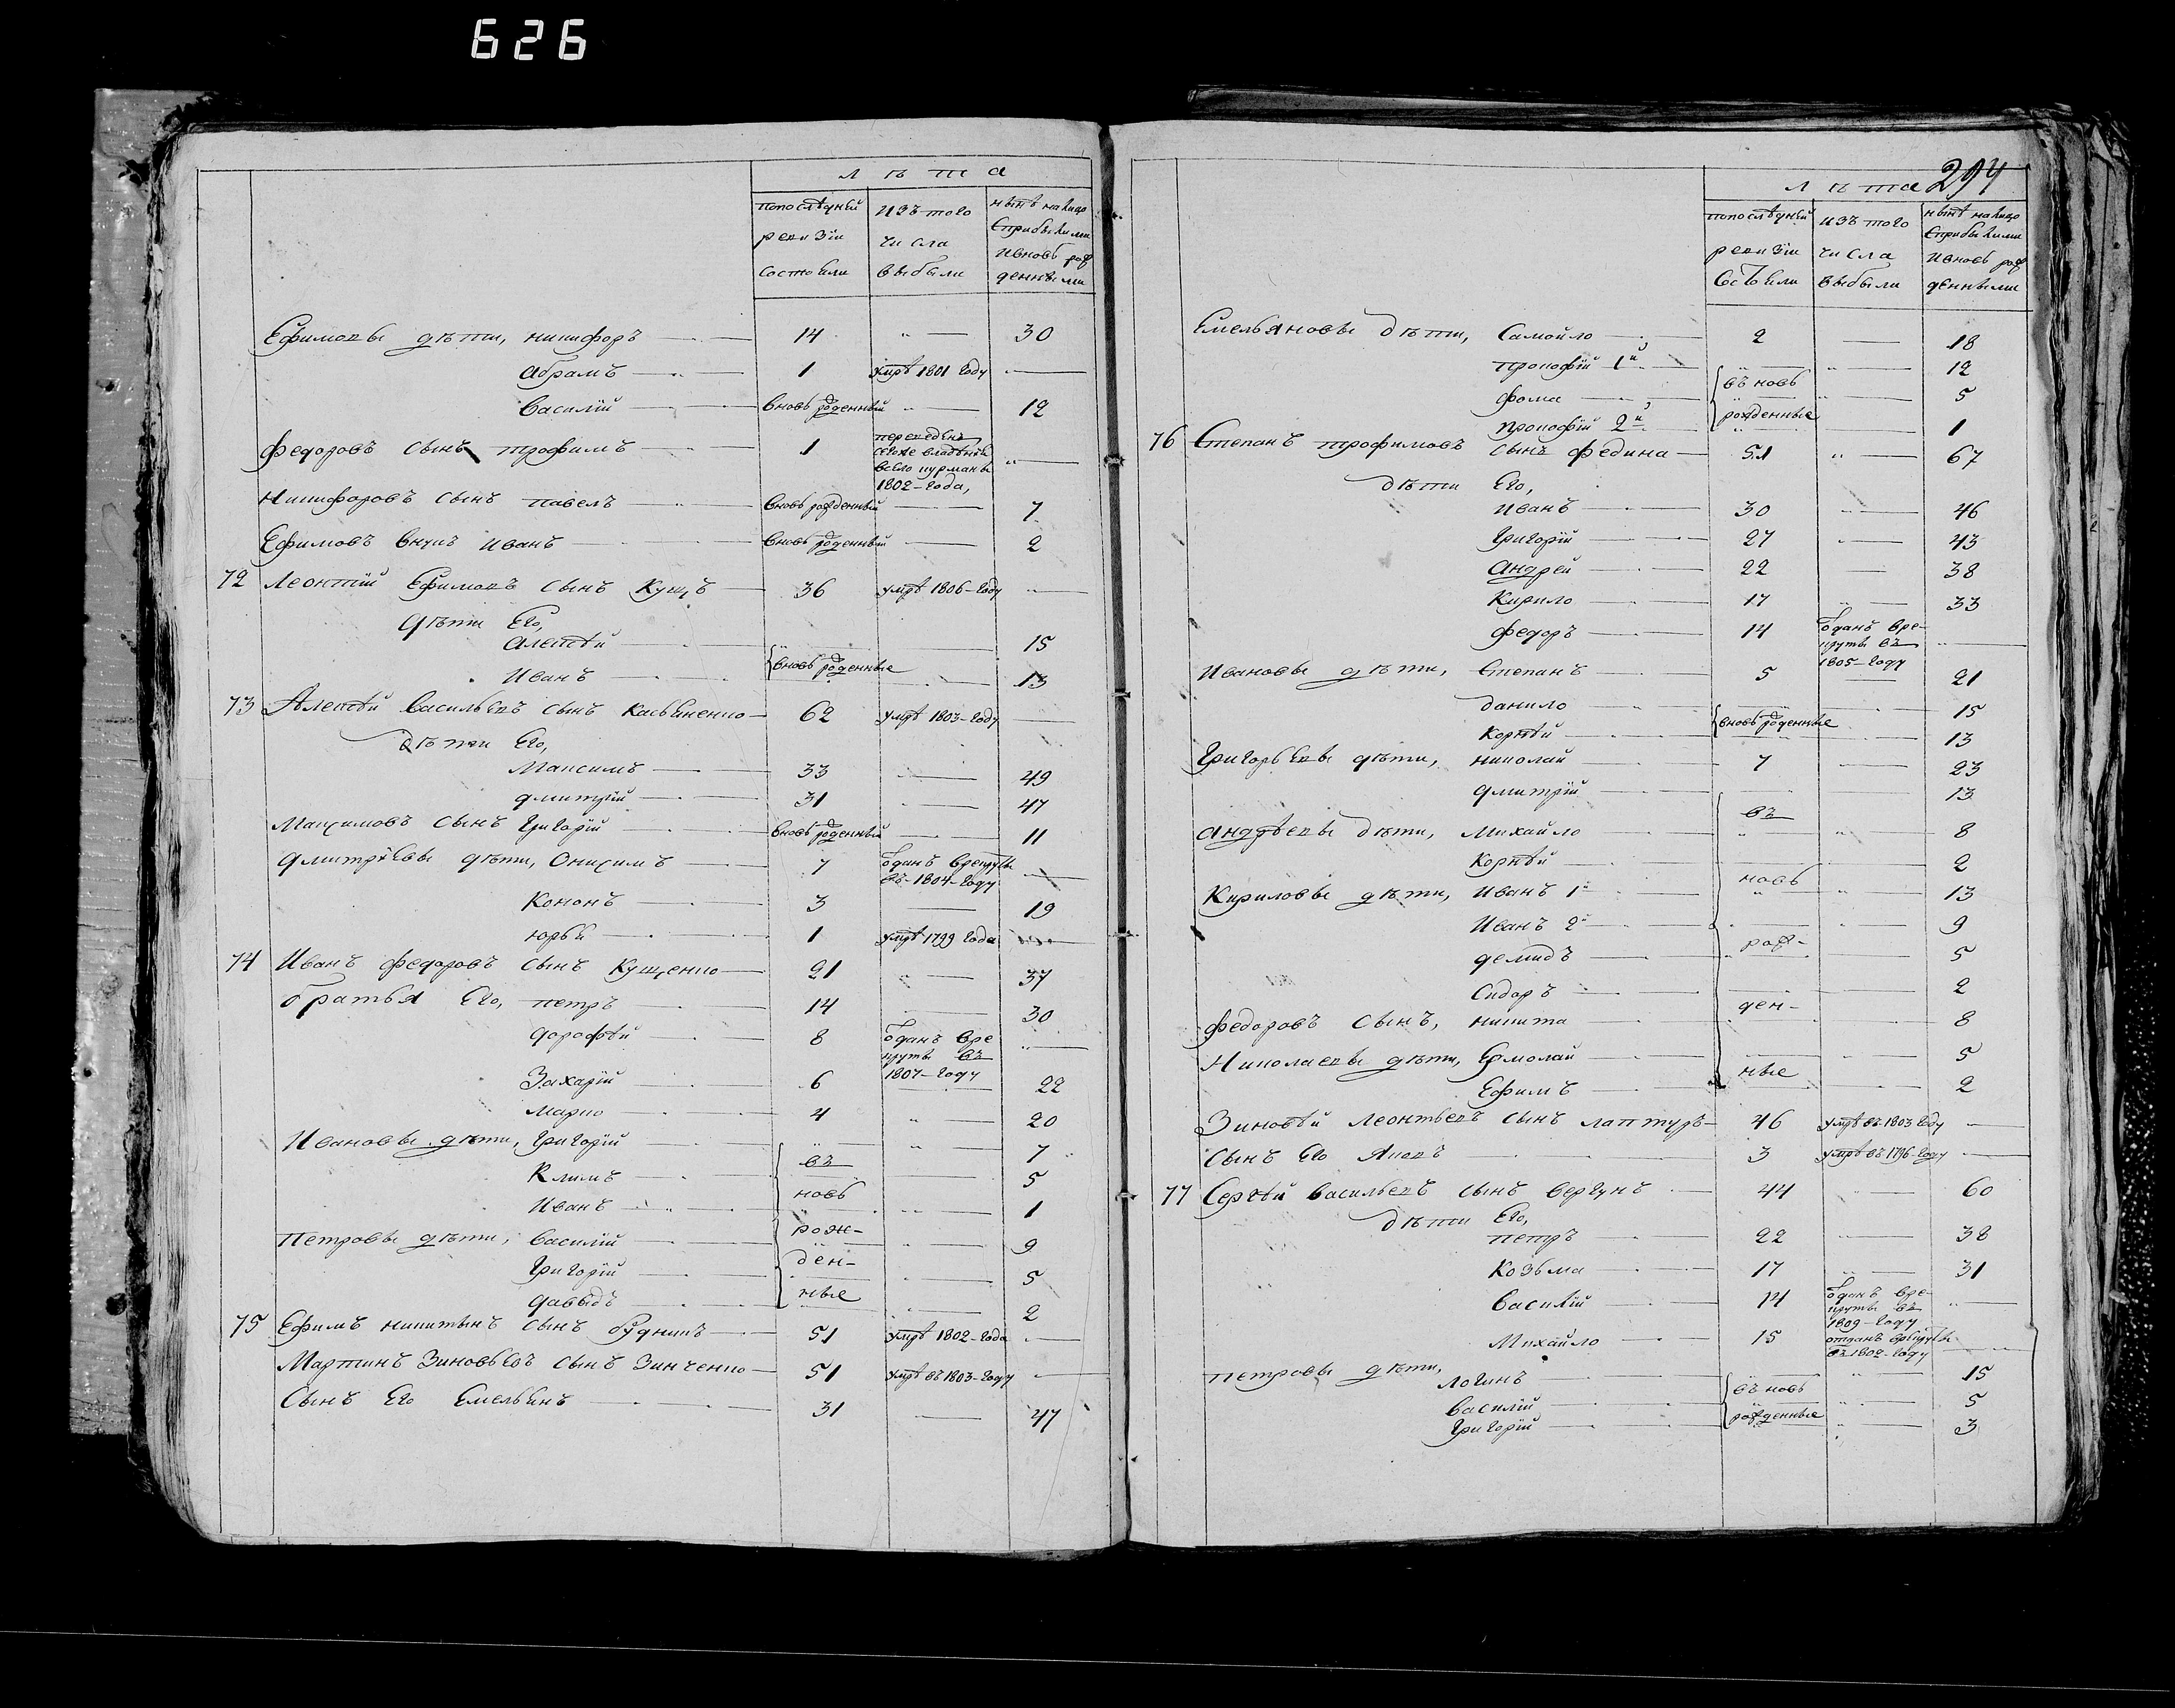 626
лѣта
попослѣдней ревизіи состояли
изъ того числа выбыли
нынѣ налицо спрібылыми ивновь рожденными
Ефимовы дѣти, никифоръ 14 30
абрамъ 1 умре 1801 году
василій вновь рожденный 12
федоровъ сынъ трофимъ 1 переведенъ 1802-года,
Никифоровъ сынъ павелъ вновь рожденный 7
Ефимовъ внукъ иванъ вновь рожденный 2
72 Леонтій Ефимовъ сынъ Кущъ 36 умре 1806-году
дѣти Его,
алексѣй 15
вновь рожденные
Иванъ 13
73 Алексѣй васильевъ сынъ касьяненко 62 умре 1803-году
дѣти Его,
Максимъ 33 49
дмитрій 31 47
Максимовъ сынъ григорій вновь рожденный 11
дмитріевы дѣти, Онисимъ 7 отданъ врекруты въ-1804-году
Кононъ 3 19
юрья 1 умре 1799 года
74 Иванъ федоровъ сынъ Кущенко 21 37
братья Его, петръ 14 30
дорофѣй 8 отданъ вре
круты въ
1807-году
Захарій 6 22
Марко 4 20
Ивановы дѣти, григорій 7
въ
Климъ 5
новь
Иванъ 1
рож-
петровы дѣти, василій 9
ден-
григорій 5
ные
давыдъ 2
75 Ефимъ никитинъ сынъ будникъ 51 умре 1802-года
Мартинъ Зиновьевъ сынъ Зинченко 51 умре въ 1803-году
Сынъ Его Емельянъ 31 47
294
лѣта
попослѣдней ревизіи состояли
изъ того числа выбыли
нынѣ налицо спрібылыми ивновь рожденными
Емельяновы дѣти, Самойло 2 18
прокофій 1й 12
въ новь
фома 5
рожденные
прокофій 2й 1
76 Степанъ трофимовъ сынъ федина 51 67
дѣти Его,
иванъ 30 46
григорій 27 43
андрей 22 38
Кирило 17 33
федоръ 14 отданъ вре-
круты въ
1805-году
Ивановы дѣти, Степанъ 5 21
данило 15
вновь рожденные
Корнѣй 13
григорьевы дѣти, николай 7 23
дмитрій 13
въ
андрѣевы дѣти, михайло 8
Корнѣй 2
новь
Кириловы дѣти, иванъ 1й 13
Иванъ 2й 9
рож-
демидъ 5
Сидоръ 2
ден-
федоровъ сынъ, никита 8
Николаевы дѣти, Ермолай 5
ные
Ефимъ 2
Зиновѣй леонтьевъ сынъ лаптуръ 46 умре въ 1803 году
сынъ Его Яковъ 3 умре въ 1796-году
77 Сергѣй васильевъ сынъ вергунъ 44 60
дѣти Его,
петръ 22 38
Козьма 17 31
василій 14 отданъ вре-
круты въ
1809-году
Михайло 15 отданъ врекруты
въ 1802-году
петровы дѣти,
логинъ 15
въ новь
василій 5
рожденные
григорій 3